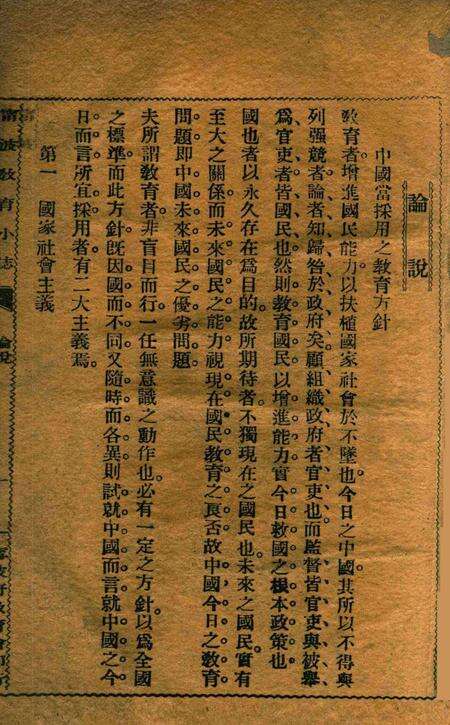 論說
中國當採用之教育方針
教育者增進國民能力以扶植國家社會於不墜也今日之中國其所以不得與
列强競者論者知歸咎於政府矣顧組織政府者官吏也而監督皆官吏與彼舉
爲官吏者皆國民也然則教育國民以增進能力實今日救國之根本政策也
國也者以永久存在爲目的故所期待者不獨現在之國民也未來之國民實有
至大之關係而未來國民之能力視現在國民教育之良否故中國今日之教育
問題卽中國未來國民之優劣問題
夫所謂教育者非盲目而行一任無意識之動作也必有一定之方針以爲全國
之標準而此方針旣因國而不同又隨時而各異則試就中國而言就中國之今
日而言所宜採用者有二大主義焉
第一 國家社會主義
甯波教育小誌
論說
一